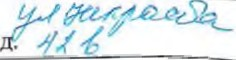 ул Некрасова
д. 42 в